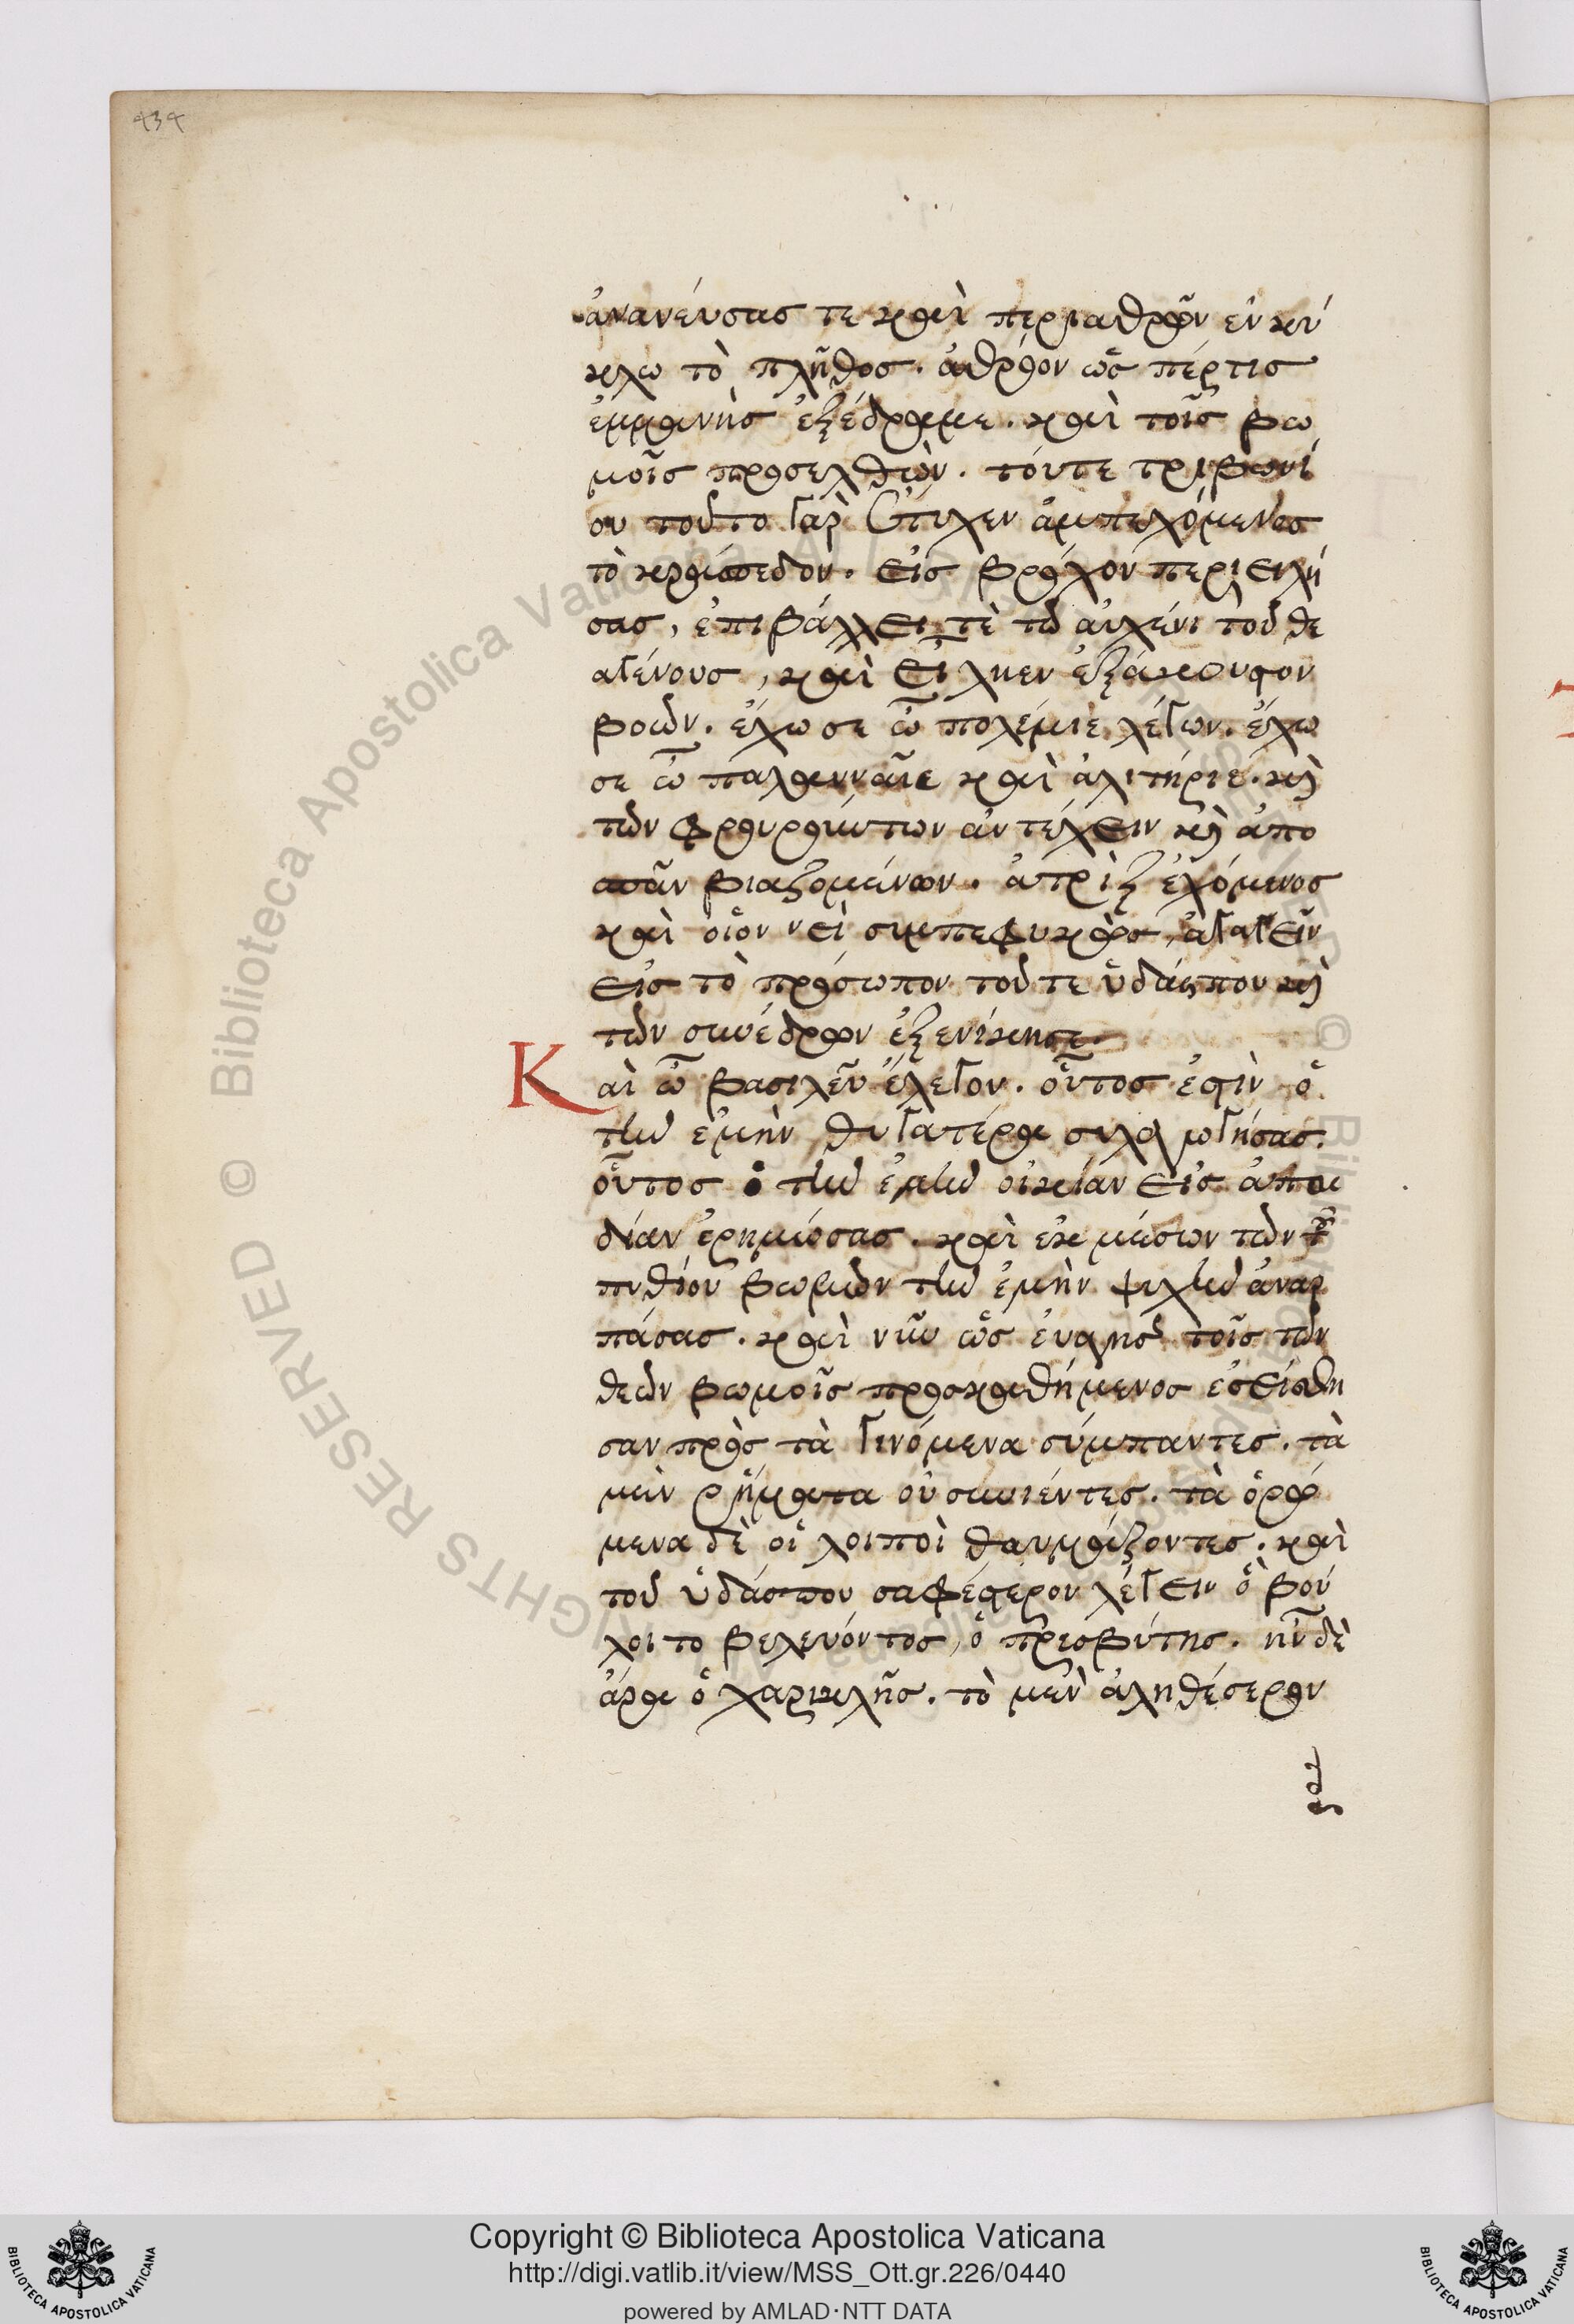 434
ἀνανεύσας τε καὶ περιαθρῶν ἐν κύ
κλω τὸ πλῆθος. ἀθρόον ὥς πέρ τις
ἐμμανὴς ἐξέδραμε. καὶ τοῖς βω
μοῖς προσελθὼν. τόυτε τριβωνί
ου τοῦτο γὰρ ἔτυχεν ἀμπεχόμενος
τὸ κράσπεδον. εἰς βρόχον περιειλή
σας, ἐπιβάλλει τὲ τῶ αὐχένι τοῦ θε
αγένους, καὶ εἷλκεν ἐξάκουστον
βοῶν. ἔχω σε ὦ πολέμιε λέγων. ἔχω
σε ὦ παλαμναῖε καὶ ἀλιτήριε. καὶ
τῶν φρουρούντων ἀντέχειν καὶ ἀπο
σπᾶν βιαζομένων. ἀπρὶξ ἐχόμενος
καὶ οἷον εἰ συμπεφυκὼς, ἀγαγεῖν
εἰς τὸ πρόσωπον τοῦ τε ὑδάσπου καὶ
τῶν συνέδρων ἐξενίκησε.
Καὶ ὦ βασιλεῦ ἔλεγον. οὗτος ἐστὶν ὁ
τὴν ἐμὴν θυγατέρα συλαγωγήσας.
οὗτος ὁ τὴν ἐμὴν οἰκίαν εἰς ἀπαι
δίαν ἐρημώσας. καὶ ἐκ μέσων τῶν τοῦ
πυθίου βωμῶν τὴν ἐμὴν ψυχὴν ἀναρ
πάσας. καὶ νῦν ὡς εὐαγὴς τοῖς τῶν
θεῶν βωμοῖς προσκαθήμενος ἐσείσθη
σαν πρὸς τὰ γινόμενα σύμπαντες. τὰ
μὲν ῥήματα οὐ συνιέντες. τὰ ὁρώ
μενα δὲ οἱ λοιποὶ θαυμάζοντες. καὶ
τοῦ ὑδάσπου σαφέστερον λέγειν ὃ βού
λοιτο κελεύοντος, ὁ πρεσβύτης. ἦν δὲ
ἄρα ὁ χαρικλῆς. τὸ μὲν ἀληθέστερον
Copyright © Biblioteca Apostolica Vaticana
http://digi.vatlib.it/view/MSS_Ott.gr.226/0440
powered by AMLAD·NTT DATA